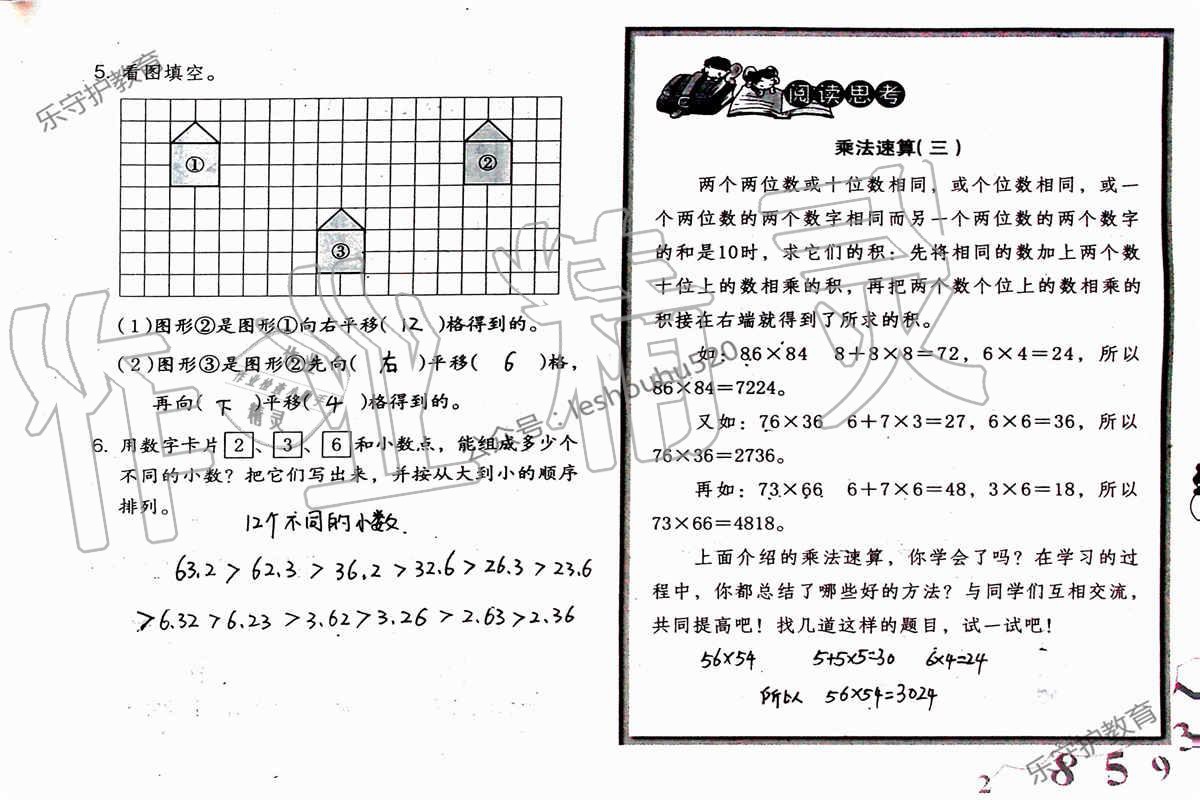 乐守护教育
5. 看图填空。
①
②
③
(1)图形②是图形①向右平移( 12 )格得到的。
(2)图形③是图形②先向( 右 )平移( 6 )格，
再向( 下 )平移( 4 )格得到的。
6. 用数字卡片 2 、 3 、 6 和小数点，能组成多少个
不同的小数？把它们写出来，并按从大到小的顺序
排列。
12个不同的小数.
63.2>62.3>36.2>32.6>26.3>23.6
>6.32>6.23>3.62>3.26>2.63>2.36
阅读思考
乘法速算(三)
两个两位数或十位数相同，或个位数相同，或一
个两位数的两个数字相同而另一个两位数的两个数字
的和是10时，求它们的积：先将相同的数加上两个数
十位上的数相乘的积，再把两个数个位上的数相乘的
积接在右端就得到了所求的积。
如：86×84 8+8×8=72，6×4=24，所以
86×84=7224。
又如：76×36 6+7×3=27，6×6=36，所以
76×36=2736。
再如：73×66 6+7×6=48，3×6=18，所以
73×66=4818。
上面介绍的乘法速算，你学会了吗？在学习的过
程中，你都总结了哪些好的方法？与同学们互相交流，
共同提高吧！找几道这样的题目，试一试吧！
56×54 5+5×5=30 6×4=24
所以 56×54=3024
作业精灵
公众号：leshouhu520
乐守护教育
2 8 5 9 3